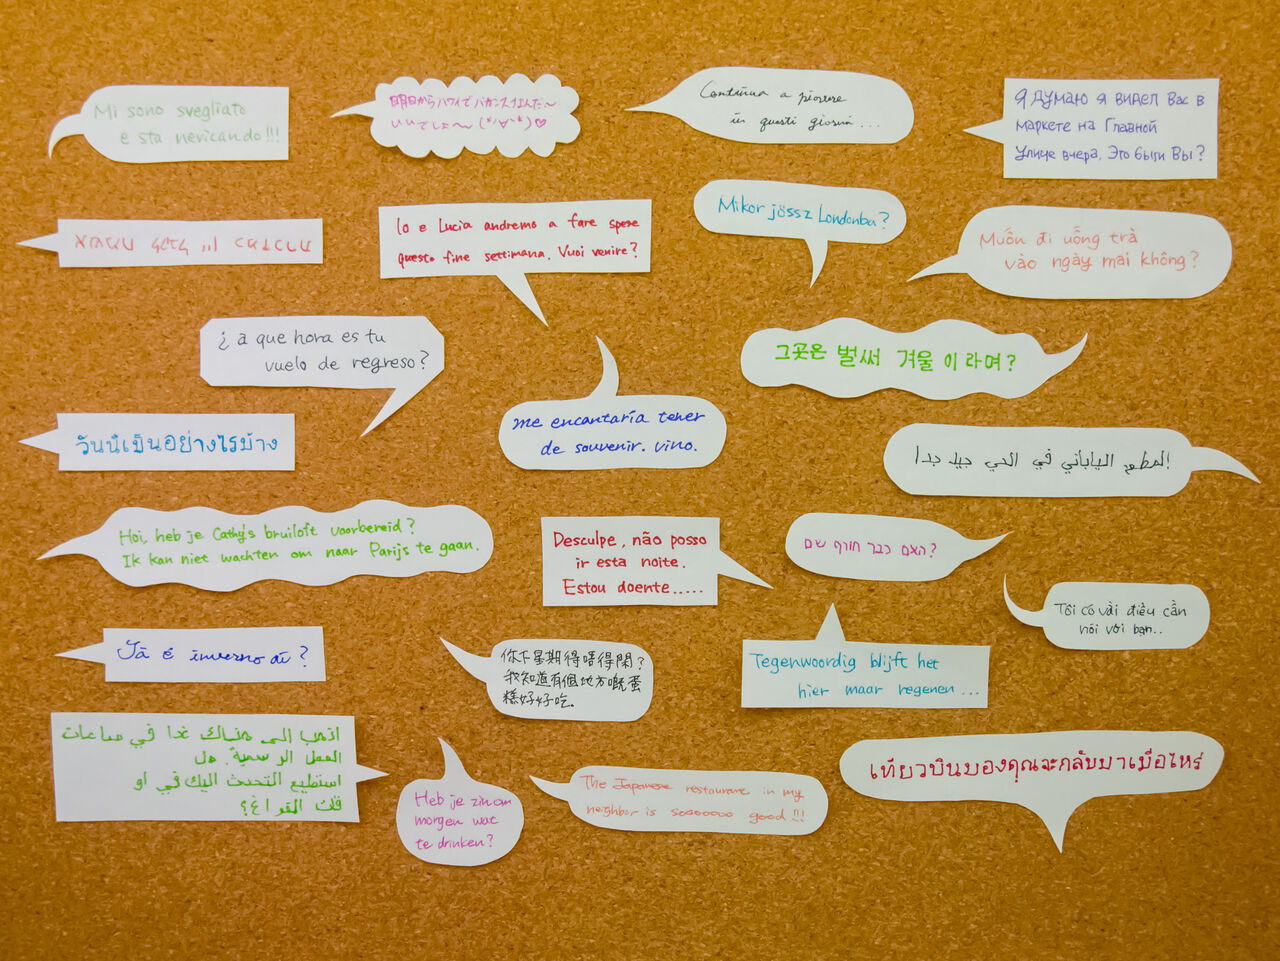 Mi sono svegliato
e sta nevicando!!!
明日からハワイでバカンスなんだ〜
いいでしょ〜 (*'∀'*)♡
Continua a piovere
in questi giorni...
Я думаю я видел Вас в
маркете на Главной
улице вчера. Это были Вы?
Io e Lucia andremo a fare spese
questo fine settimana. Vuoi venire?
Mikor jössz Londonba?
Muốn đi uống trà
vào ngày mai không?
¿ a que hora es tu
vuelo de regreso?
그곳은 벌써 겨울이라며?
me encantaría tener
de souvenir. vino.
วันนี้เป็นอย่างไรบ้าง
المطعم الياباني في الحي جيد جدا!
Hoi, heb je Cathy's bruiloft voorbereid?
Ik kan niet wachten om naar Parijs te gaan.
Desculpe, não posso
ir esta noite.
Estou doente.....
האם כבר חורף שם?
Tôi có vài điều cần
nói với bạn..
Já é inverno aí?
你下星期得唔得閒?
我知道有個地方嘅蛋
糕好好吃。
Tegenwoordig blijft het
hier maar regenen...
اذهب الى هناك غدا في ساعات
العمل الرسمية. هل
استطيع التحدث اليك في او
قات الفراغ؟
Heb je zin om
morgen wat
te drinken?
The Japanese restaurant in my
neighbor is soooooo good!!!
เที่ยวบินของคุณจะกลับมาเมื่อไหร่